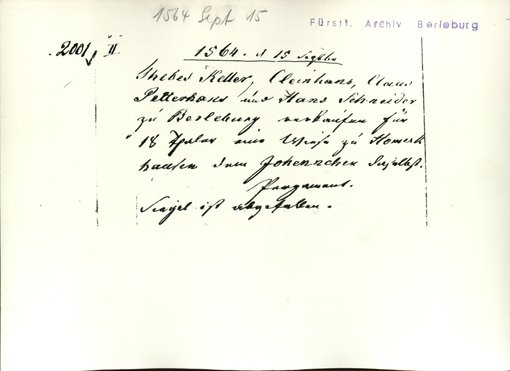 1564 Sept 15
Fürstl. Archiv Berleburg
2001 II.
1564. d 15 Septbr
Thebes Ketter, Cleinhans, Claus
Petterhans und Hans Schneider
zu Berleburg verkaufen für
18 Thaler eine Wiese zu Homerk
hausen dem Johennchen daselbst.
Pergament.
Siegel ist abgefallen.